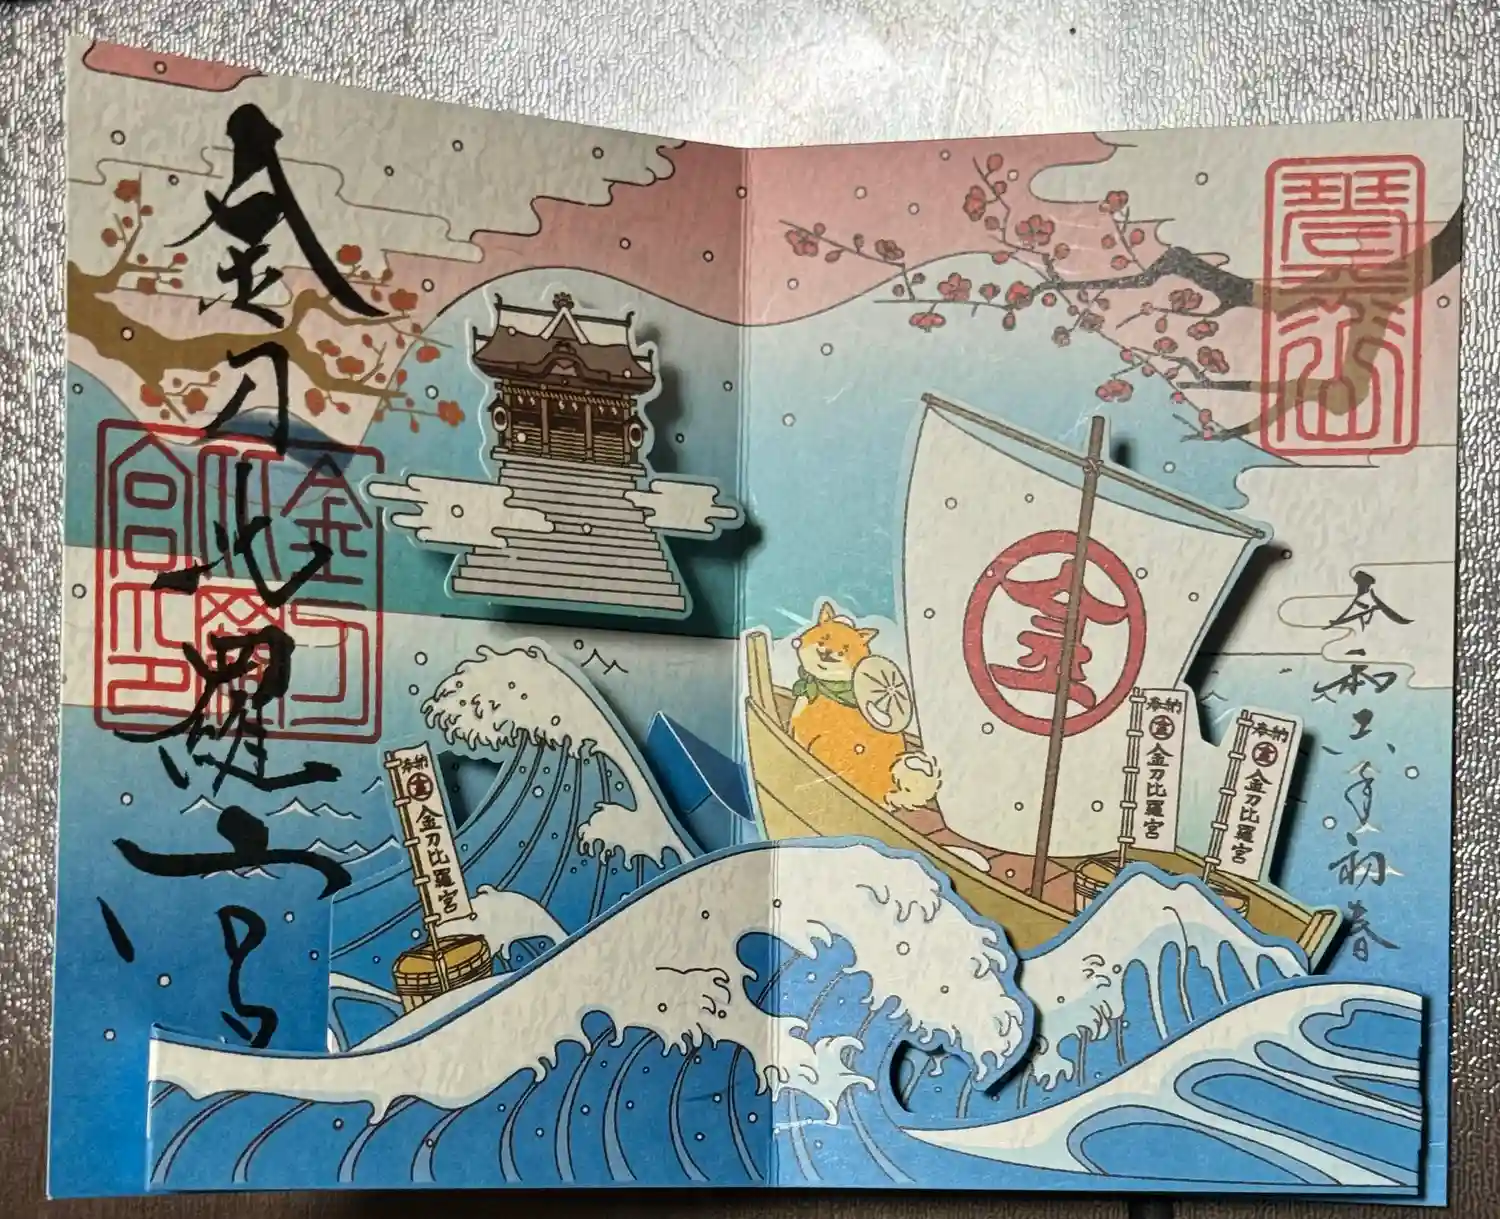 琴平山
令和六年初春
金
奉納 金 金刀比羅宮
奉納 金 金刀比羅宮
奉納 金 金刀比羅宮
金刀比羅宮
金刀
比羅
宮印